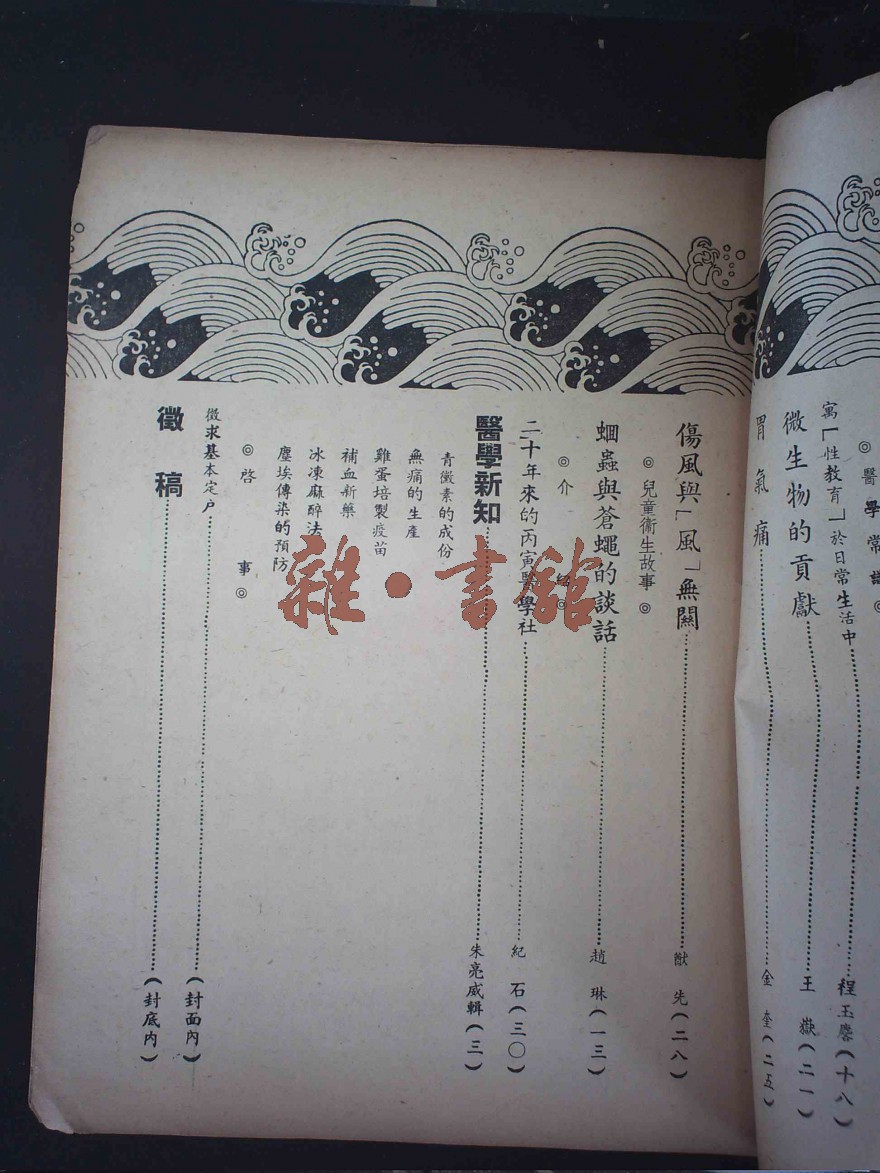 ◎醫學常識◎
寓「性教育」於日常生活中……程玉麐(十八)
微生物的貢獻……王嶽(二一)
胃氣痛……金奎(二五)
傷風與「風」無關……猷先(二八)
◎兒童衛生故事◎
蛔蟲與蒼蠅的談話……趙琳(一三)
◎介紹◎
二十年來的丙寅醫學社……紀石(三〇)
醫學新知……朱亮威輯(三)
青黴素的成份
無痛的生產
雞蛋培製疫苗
補血新藥
冰凍麻醉法
塵埃傳染的預防
◎啓事◎
徵求基本定户……(封面內)
徵稿……(封底內)
雜·書館